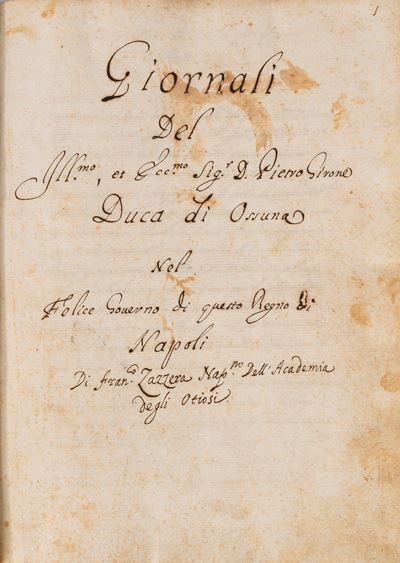 1
Giornali
Del
Ill.mo, et Ecc.mo Sig.r D. Pietro Girone
Duca di Ossuna
Nel
Felice Governo di questo Regno di
Napoli
Di Fran.co Zazzera Nap.no Dell'Academia
degli Otiosi.